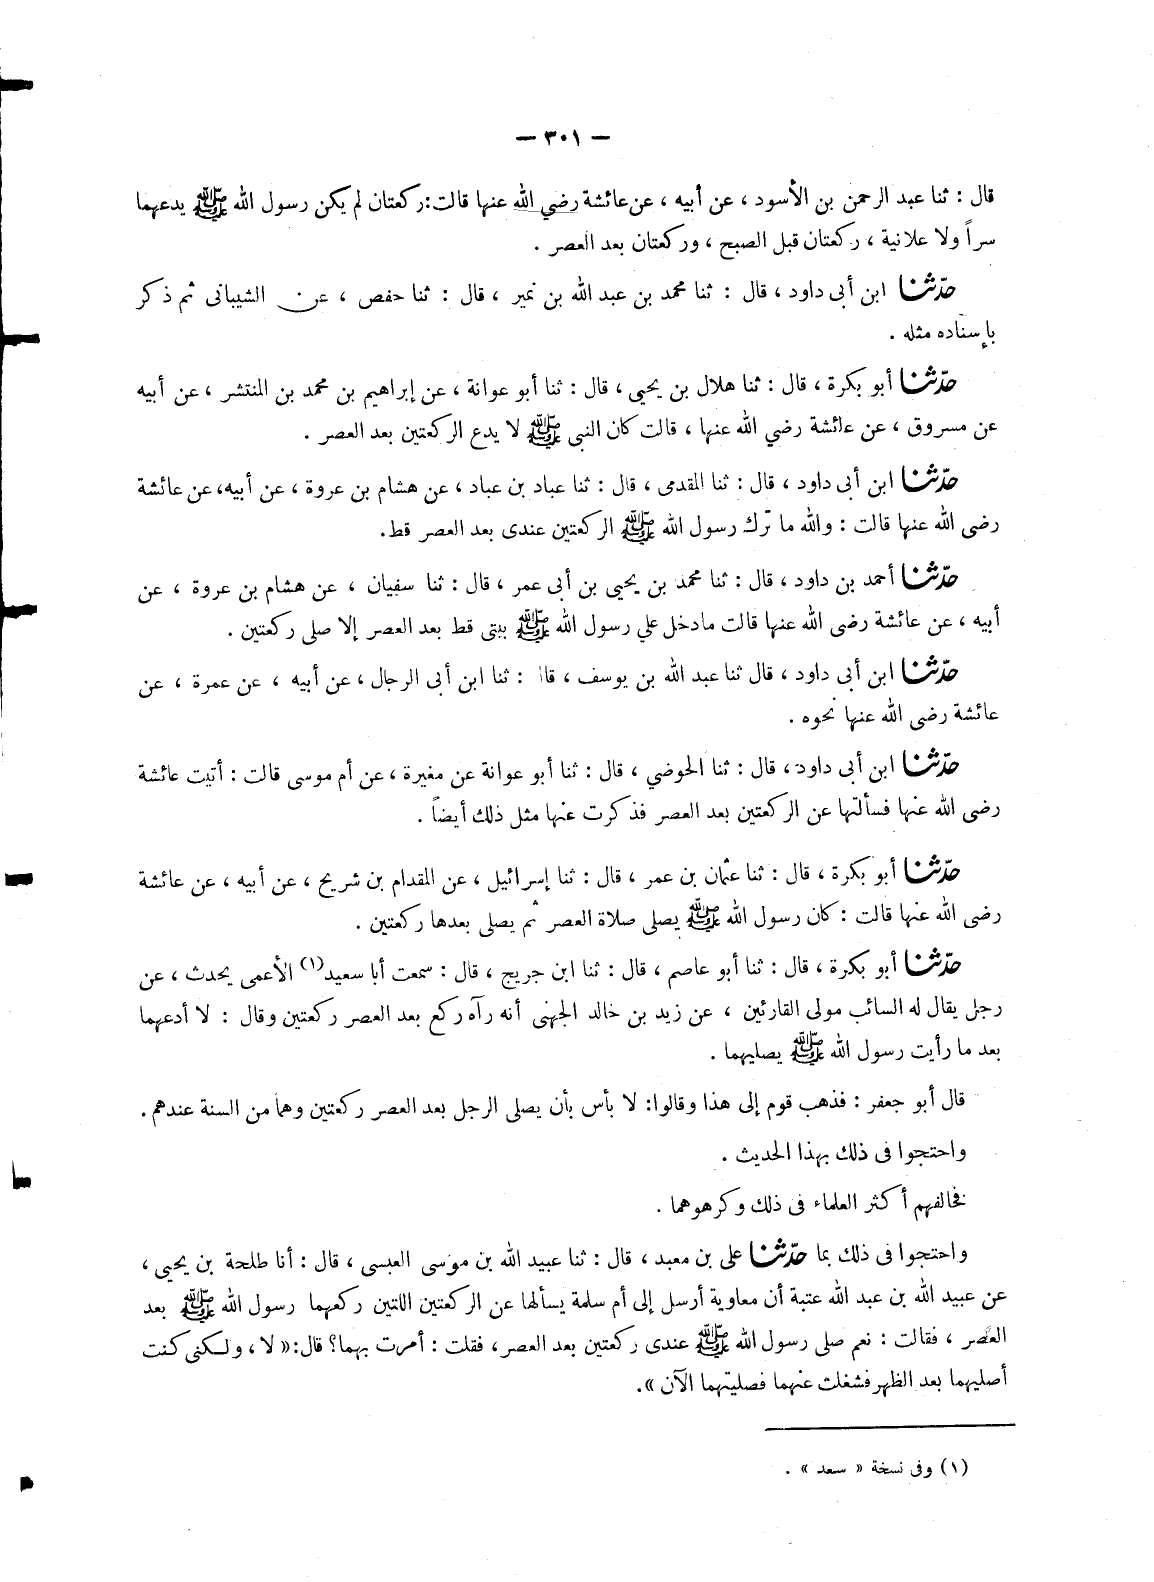 — ٣٠١ —
قال : ثنا عبد الرحمن بن الأسود ، عن أبيه ، عن عائشة رضي الله عنها قالت: ركعتان لم يكن رسول الله ﷺ يدعهما
سراً ولا علانية ، ركعتان قبل الصبح ، وركعتان بعد العصر .
حدّثنا ابن أبى داود ، قال : ثنا محمد بن عبد الله بن نمير ، قال : ثنا حفص ، عن الشيبانى ثم ذكر
بإسناده مثله .
حدّثنا أبو بكرة ، قال : ثنا هلال بن يحيى ، قال : ثنا أبو عوانة ، عن إبراهيم بن محمد بن المنتشر ، عن أبيه
عن مسروق ، عن عائشة رضي الله عنها ، قالت كان النبى ﷺ لا يدع الركعتين بعد العصر .
حدّثنا ابن أبى داود ، قال : ثنا المقدمى ، قال : ثنا عباد بن عباد ، عن هشام بن عروة ، عن أبيه، عن عائشة
رضى الله عنها قالت : والله ما ترك رسول الله ﷺ الركعتين عندى بعد العصر قط.
حدّثنا أحمد بن داود ، قال : ثنا محمد بن يحيى بن أبى عمر ، قال : ثنا سفيان ، عن هشام بن عروة ، عن
أبيه ، عن عائشة رضى الله عنها قالت مادخل علي رسول الله ﷺ بيتى قط بعد العصر إلا صلى ركعتين .
حدّثنا ابن أبى داود ، قال ثنا عبد الله بن يوسف ، قال : ثنا ابن أبى الرجال ، عن أبيه ، عن عمرة ، عن
عائشة رضى الله عنها نحوه .
حدّثنا ابن أبى داود، قال : ثنا الحوضي ، قال : ثنا أبو عوانة عن مغيرة ، عن أم موسى قالت : أتيت عائشة
رضى الله عنها فسألتها عن الركعتين بعد العصر فذكرت عنها مثل ذلك أيضاً .
حدّثنا أبو بكرة ، قال : ثنا عثمان بن عمر ، قال : ثنا إسرائيل ، عن المقدام بن شريح ، عن أبيه ، عن عائشة
رضى الله عنها قالت : كان رسول الله ﷺ يصلى صلاة العصر ثم يصلى بعدها ركعتين .
حدّثنا أبو بكرة ، قال : ثنا أبو عاصم ، قال : ثنا ابن جريج ، قال : سمعت أبا سعيد(١) الأعمى يحدث ، عن
رجل يقال له السائب مولى القارئين ، عن زيد بن خالد الجهنى أنه رآه ركع بعد العصر ركعتين وقال : لا أدعهما
بعد ما رأيت رسول الله ﷺ يصليهما .
قال أبو جعفر : فذهب قوم إلى هذا وقالوا: لا بأس بأن يصلى الرجل بعد العصر ركعتين وهما من السنة عندهم.
واحتجوا فى ذلك بهذا الحديث .
فخالفهم أكثر العلماء فى ذلك وكرهوهما .
واحتجوا فى ذلك بما حدّثنا على بن معبد ، قال : ثنا عبيد الله بن موسى العبسى ، قال : أنا طلحة بن يحيى ،
عن عبيد الله بن عبد الله عتبة أن معاوية أرسل إلى أم سلمة يسألها عن الركعتين اللتين ركعهما رسول الله ﷺ بعد
العصر ، فقالت : نعم صلى رسول الله ﷺ عندى ركعتين بعد العصر، فقلت : أمرت بهما؟ قال: « لا ، ولكنى كنت
أصليهما بعد الظهر فشغلت عنهما فصليتهما الآن ».
(١) وفى نسخة « سعد » .